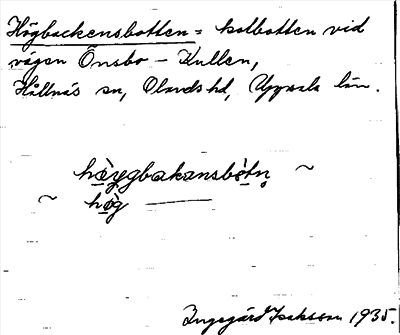 Högbackensbotten = kolbotten vid
vägen Önsbo - Kullen,
Hållnäs sn, Olands hd, Uppsala län.
hö̀ygbakansbòtn̥ ~
~ hö̀g ———
Ingegärd Isaksson 1935.